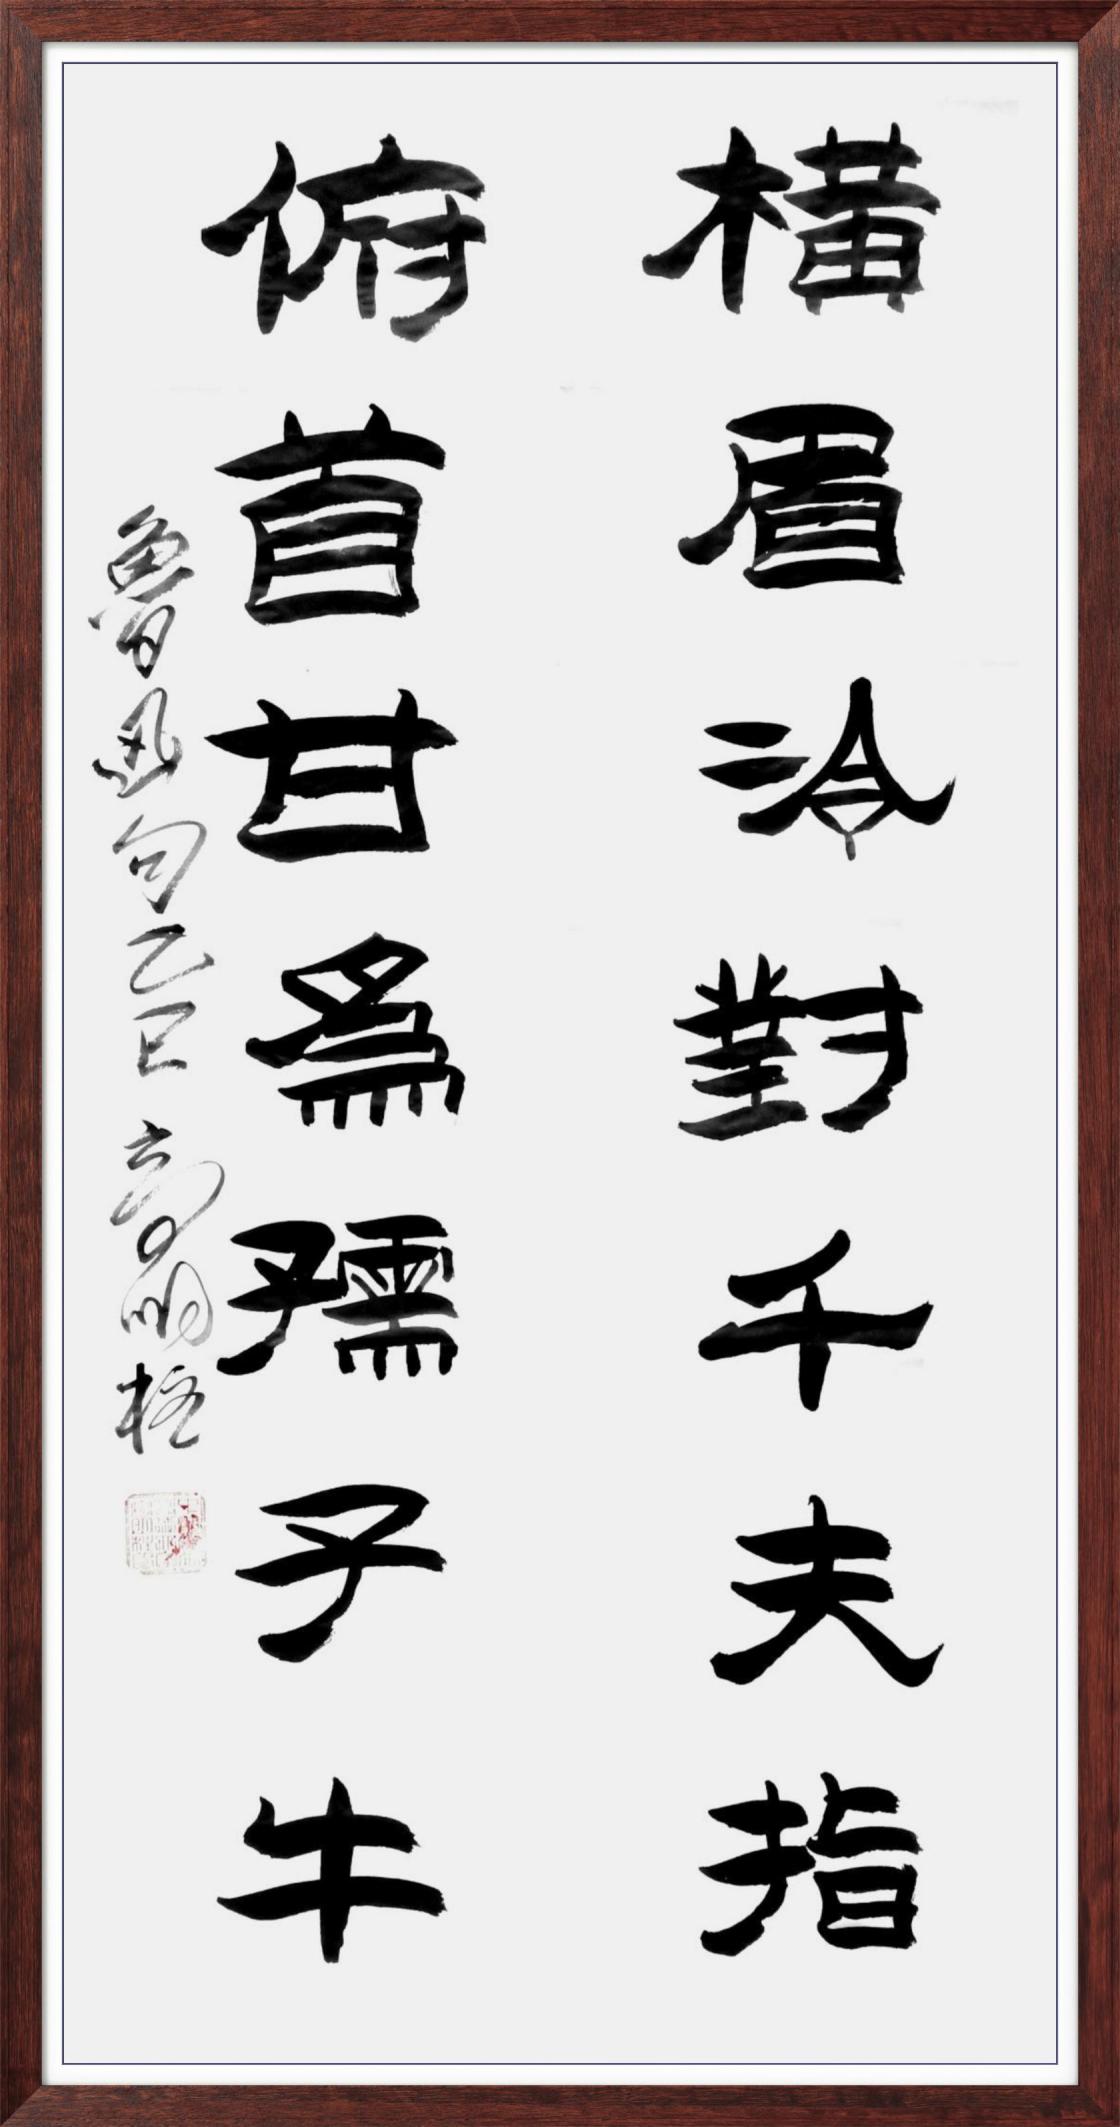 橫眉冷對千夫指
俯首甘爲孺子牛
魯迅句乙巳 高明柱